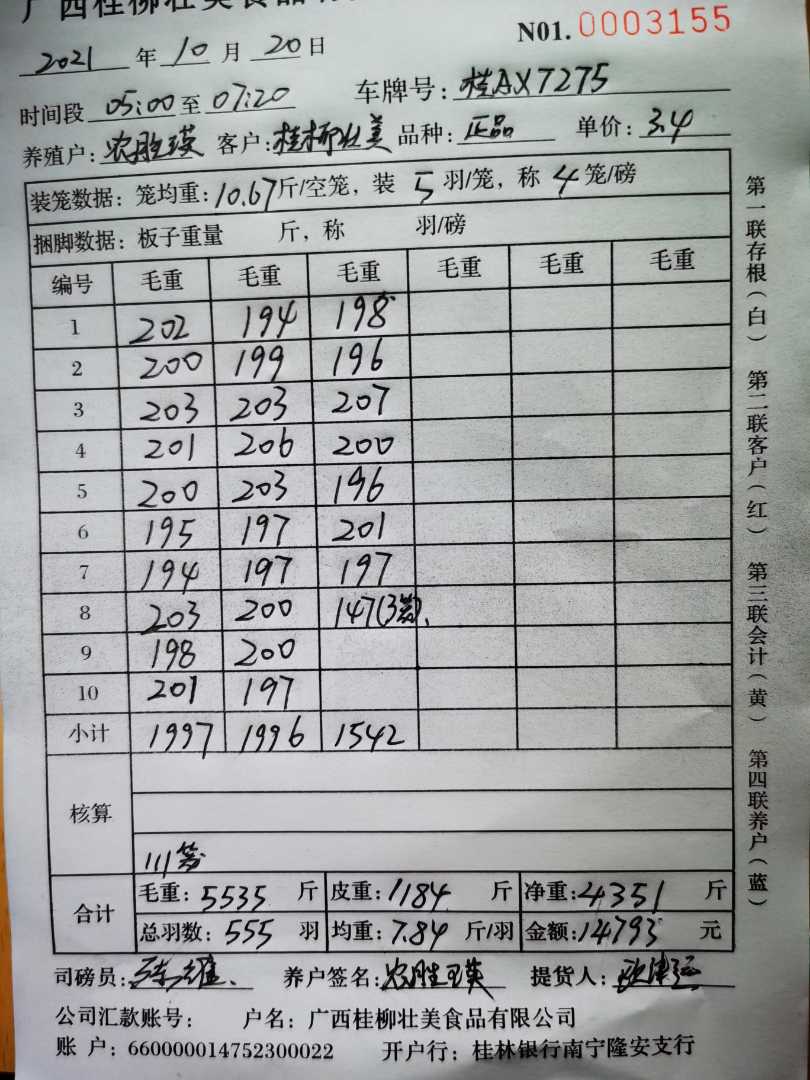 广西桂柳壮美食品
N01.0003155
2021 年 10 月 20 日
时间段 05:00 至 07:20 车牌号: 桂AX7275
养殖户: 农胜瑛 客户: 桂柳壮美 品种: 正品 单价: 3.4
装笼数据: 笼均重: 10.67 斤/空笼, 装 5 羽/笼, 称 4 笼/磅
捆脚数据: 板子重量 斤, 称 羽/磅
编号 毛重 毛重 毛重 毛重 毛重 毛重
1 202 194 198
2 200 199 196
3 203 203 207
4 201 206 200
5 200 203 196
6 195 197 201
7 194 197 197
8 203 200 147(3笼).
9 198 200
10 201 197
小计 1997 1996 1542
核算
111笼
合计 毛重: 5535 斤 皮重: 1184 斤 净重: 4351 斤
总羽数: 555 羽 均重: 7.84 斤/羽 金额: 14793 元
司磅员: 养户签名: 农胜瑛 提货人:
公司汇款账号: 户名: 广西桂柳壮美食品有限公司
账 户: 660000014752300022 开户行: 桂林银行南宁隆安支行
第一联存根(白) 第二联客户(红) 第三联会计(黄) 第四联养户(蓝)